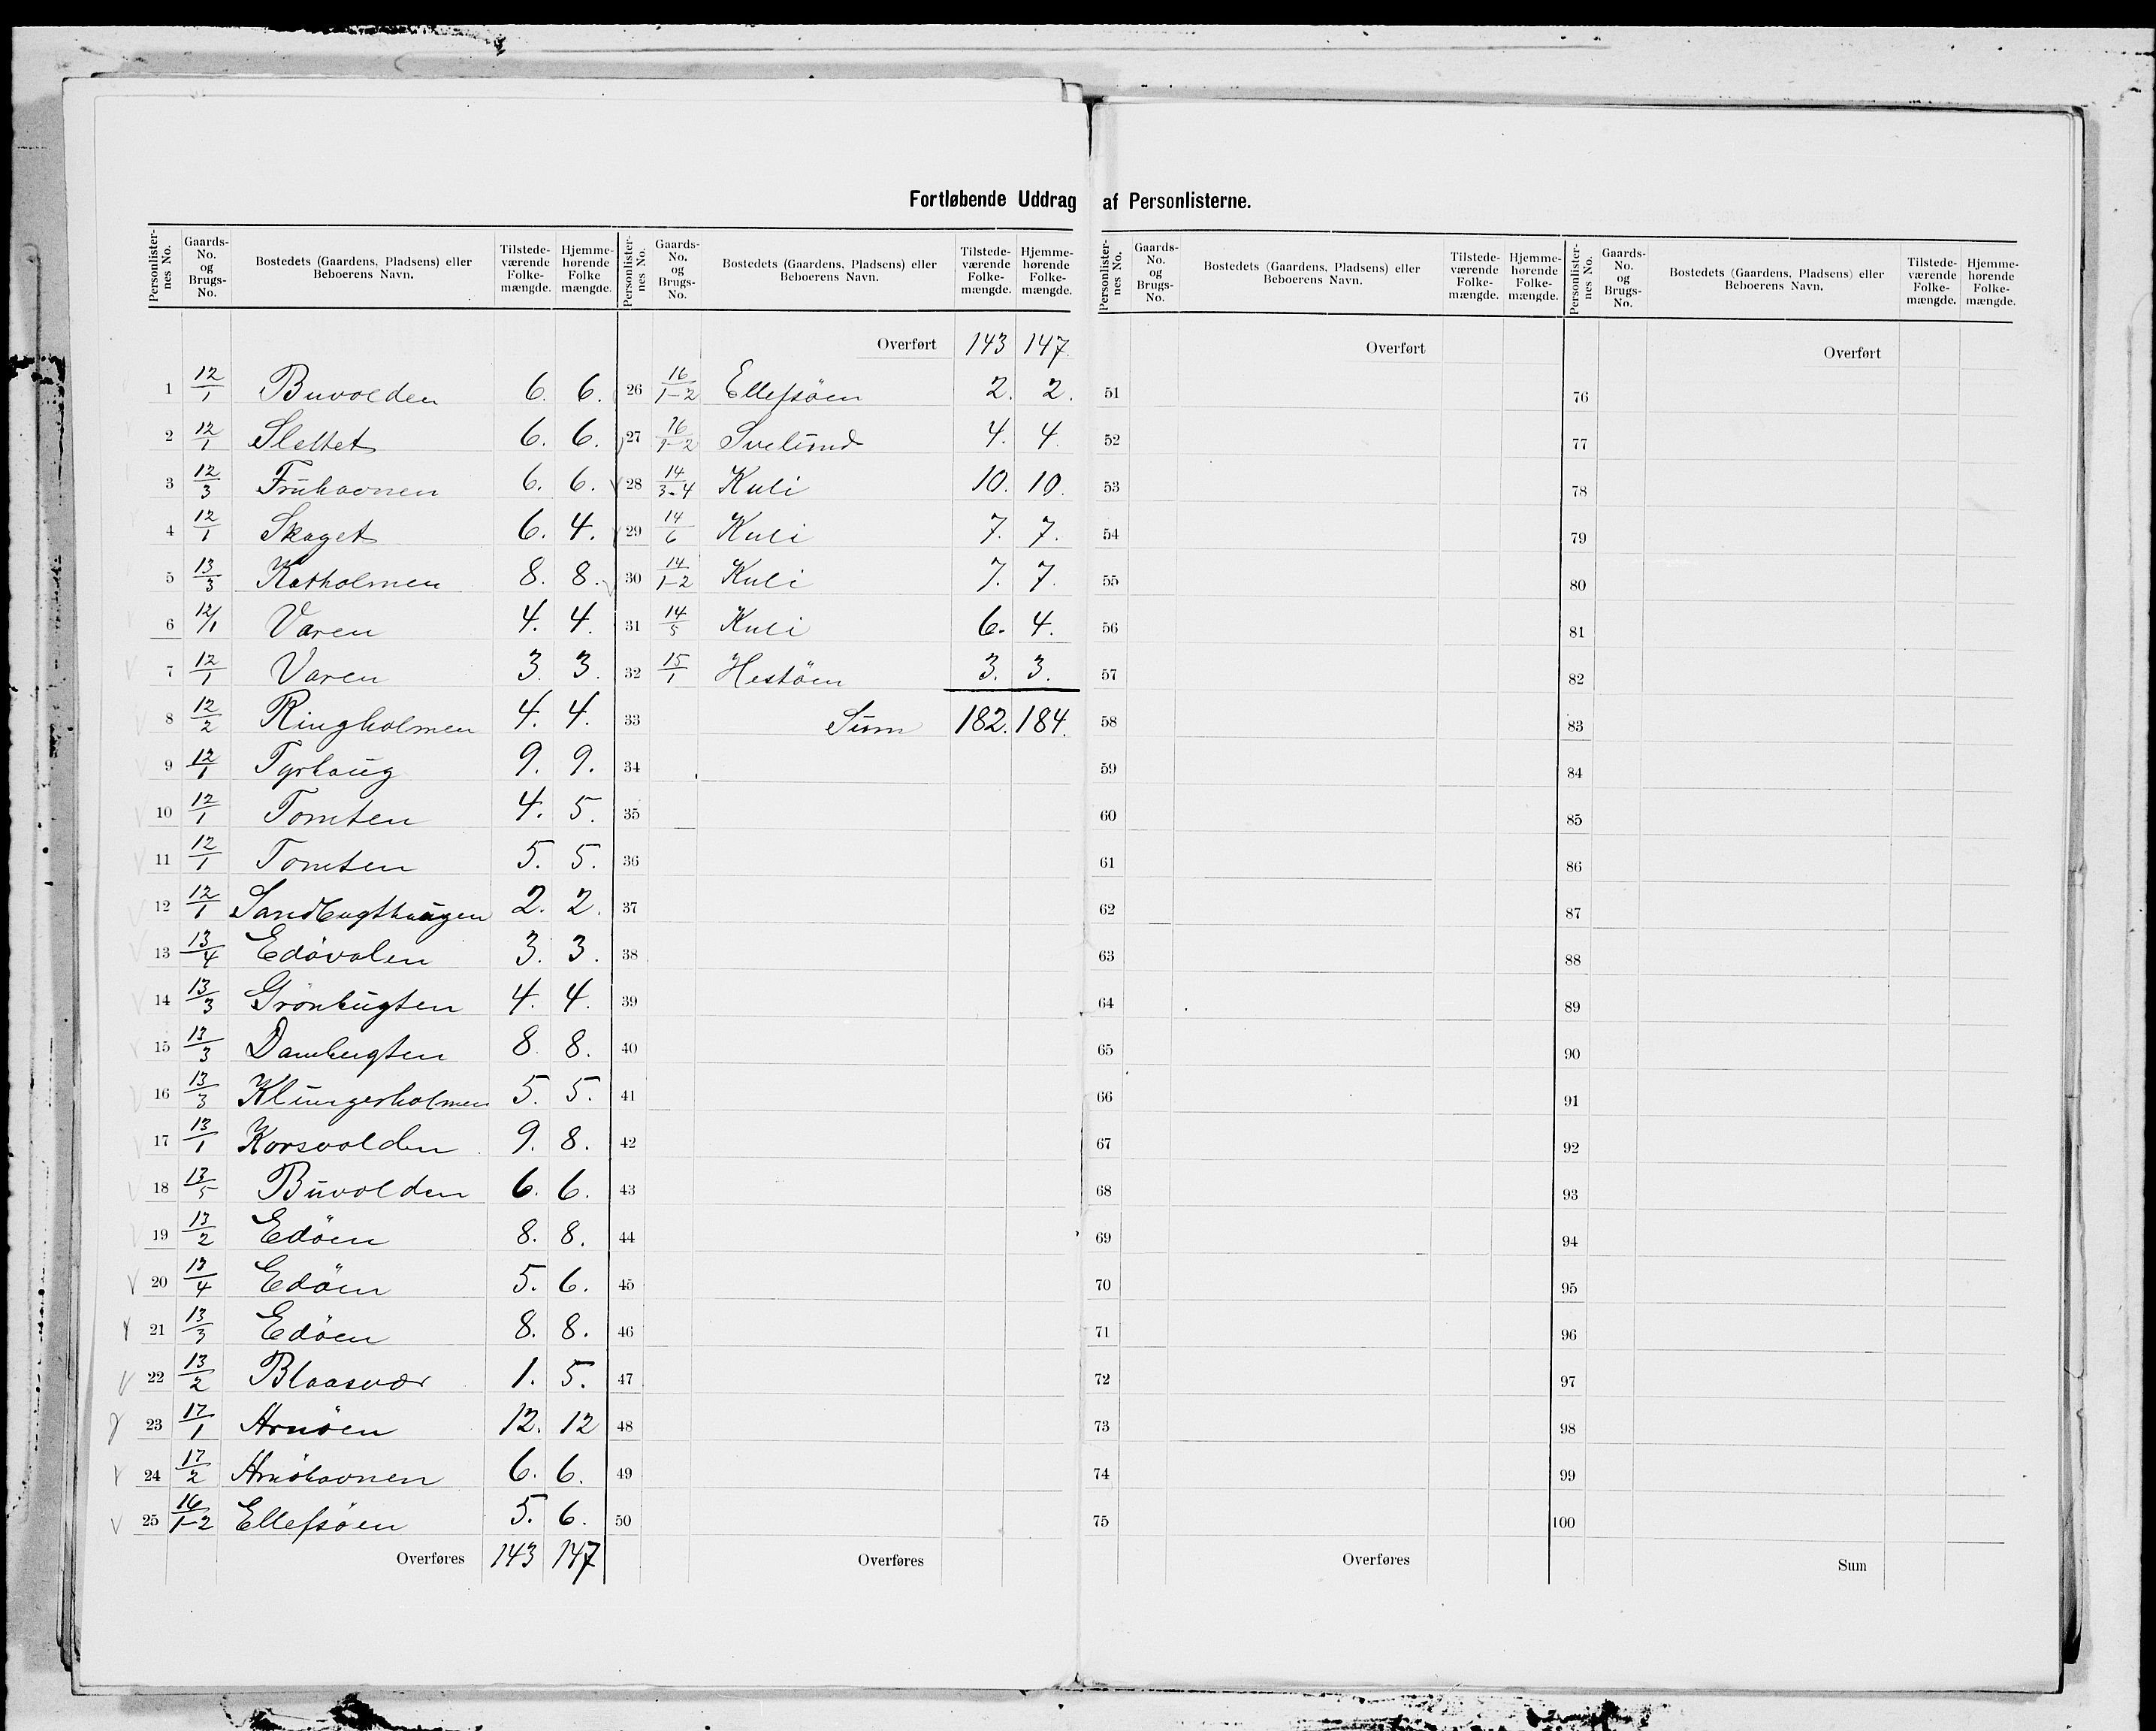 Fortløbende Uddrag af Personlisterne.
Personlisternes No. | Gaards-No. og Brugs-No. | Bostedets (Gaardens, Pladsens) eller Beboerens Navn. | Tilstedeværende Folkemængde. | Hjemmehørende Folkemængde.
1 12/1 Buvolden 6. 6.
2 12/1 Slettet 6. 6.
3 12/3 Frühavnen 6. 6.
4 12/1 Skaget 6. 4.
5 13/3 Katholmen 8. 8.
6 12/1 Varen 4. 4.
7 12/1 Varen 3. 3.
8 12/2 Ringholmen 4. 4.
9 12/1 Tyrhaug 9. 9.
10 12/1 Tomten 4. 5.
11 12/1 Tomten 5. 5.
12 12/1 Sandbugthaugen 2. 2.
13 13/4 Edövalen 3. 3.
14 13/3 Grönbugten 4. 4.
15 13/3 Dambugten 8. 8.
16 13/3 Klüngerholmen 5. 5.
17 13/1 Korsvolden 9. 8.
18 13/5 Büvolden 6. 6.
19 13/2 Edöen 8. 8.
20 13/4 Edöen 5. 6.
21 13/3 Edöen 8. 8.
22 13/2 Blaasvær 1. 5.
23 17/1 Arnöen 12. 12
24 17/2 Arnöhavnen 6. 6.
25 16/1-2 Ellefsöen 5. 6.
Overføres 143 147
Personlisternes No. | Gaards-No. og Brugs-No. | Bostedets (Gaardens, Pladsens) eller Beboerens Navn. | Tilstedeværende Folkemængde. | Hjemmehørende Folkemængde.
Overført 143 147.
26 16/1-2 Ellefsöen 2. 2.
27 16/1-2 Svelünd 4. 4.
28 14/3-4 Kuli 10. 10.
29 14/6 Kuli 7. 7.
30 14/1-2 Kuli 7. 7.
31 14/5 Kuli 6. 4.
32 15/1 Hestöen 3. 3.
33 Süm 182. 184.
34
35
36
37
38
39
40
41
42
43
44
45
46
47
48
49
50
Overføres
Personlisternes No. | Gaards-No. og Brugs-No. | Bostedets (Gaardens, Pladsens) eller Beboerens Navn. | Tilstedeværende Folkemængde. | Hjemmehørende Folkemængde.
Overført
51
52
53
54
55
56
57
58
59
60
61
62
63
64
65
66
67
68
69
70
71
72
73
74
75
Overføres
Personlisternes No. | Gaards-No. og Brugs-No. | Bostedets (Gaardens, Pladsens) eller Beboerens Navn. | Tilstedeværende Folkemængde. | Hjemmehørende Folkemængde.
Overført
76
77
78
79
80
81
82
83
84
85
86
87
88
89
90
91
92
93
94
95
96
97
98
99
100
Sum